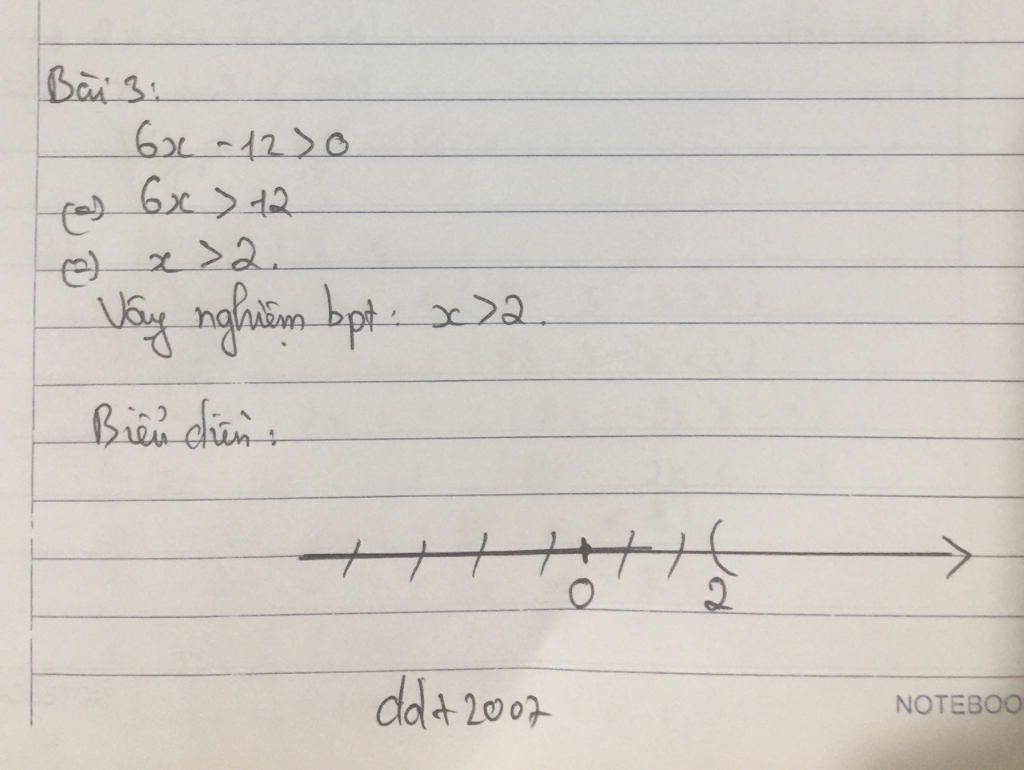 Bài 3:
6x - 12 > 0
(=) 6x > 12
(=) x > 2.
Vậy nghiệm bpt: x > 2.
Biểu diễn:
0 ( 2
ddt2007
NOTEBOO